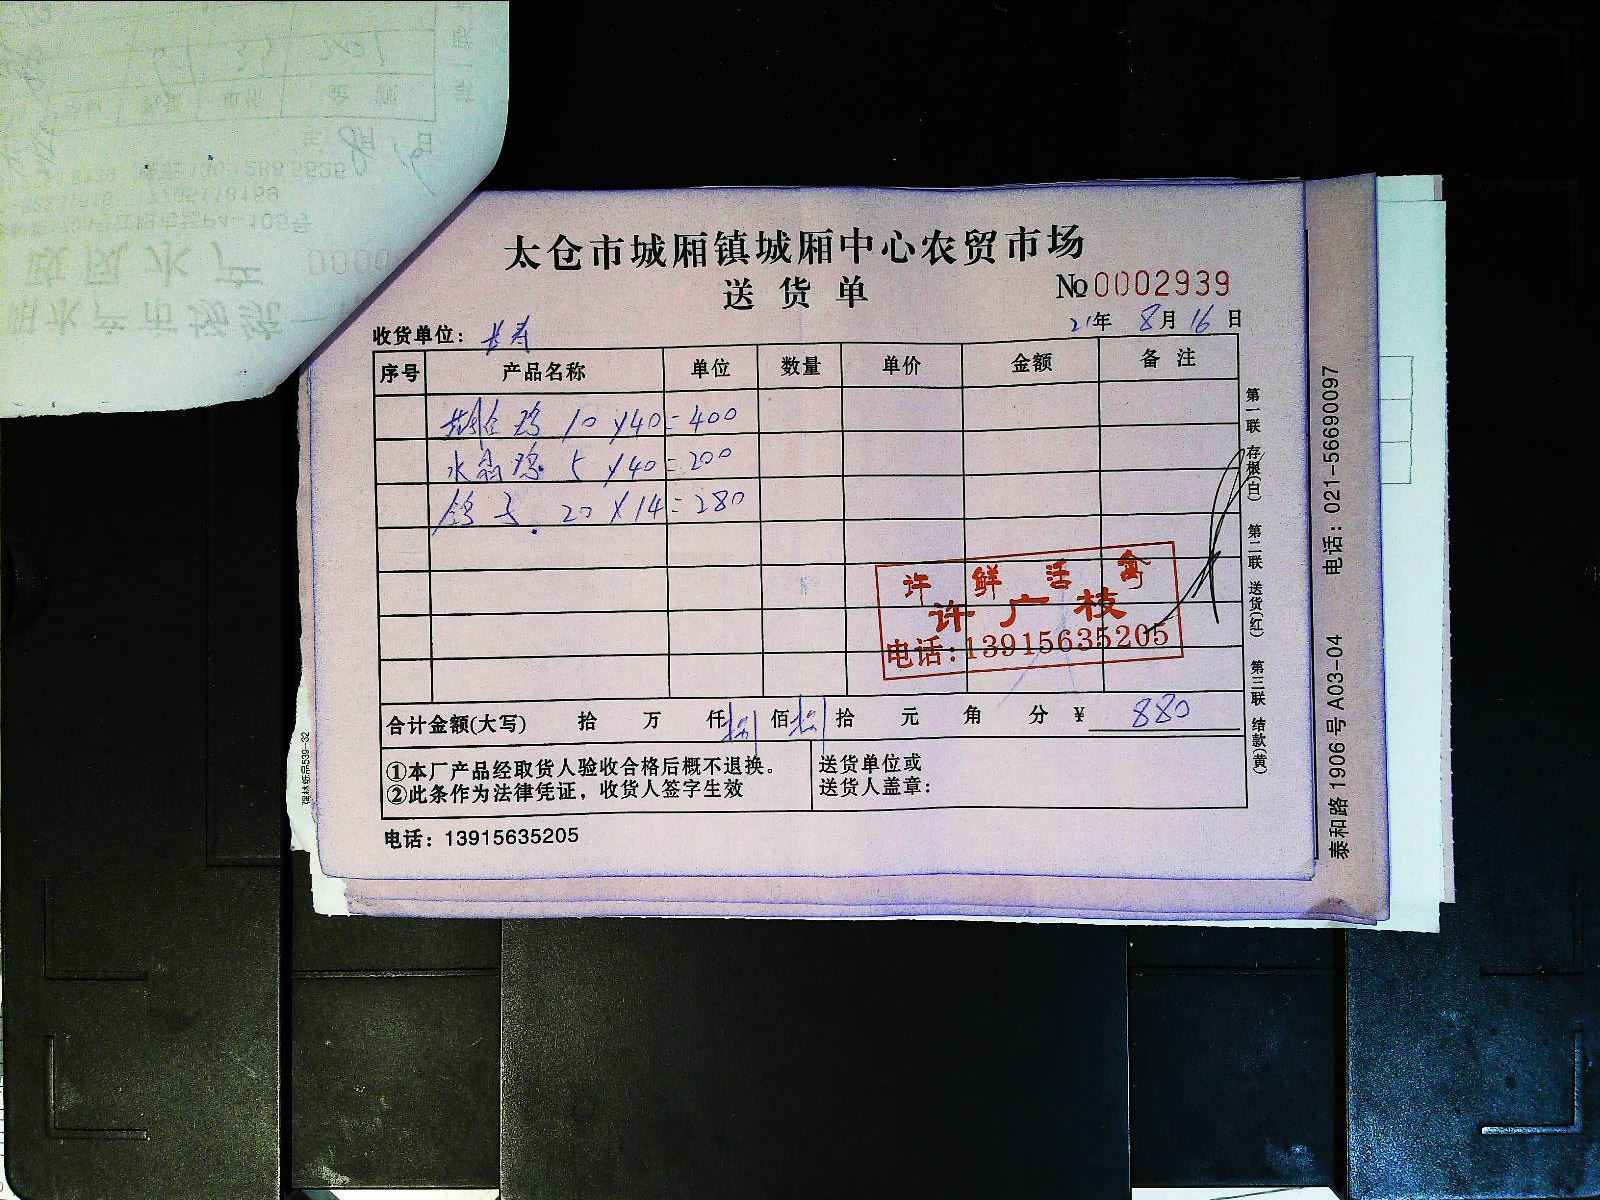 太仓市城厢镇城厢中心农贸市场
送货单
№0002939
收货单位：长寿
21年8月16日
序号 产品名称 单位 数量 单价 金额 备注
鸡 10×40=400
水 鸡 5×40=200
鸽子 20×14=280
许鲜活禽
许广枝
电话:13915635205
合计金额(大写) 拾 万 仟捌佰捌拾 元 角 分 ¥ 880
①本厂产品经取货人验收合格后概不退换。
②此条作为法律凭证，收货人签字生效
送货单位或
送货人盖章：
电话：13915635205
第一联 存根(白) 第二联 送货(红) 第三联 结款(黄)
泰和路1906号A03-04 电话：021-56690097